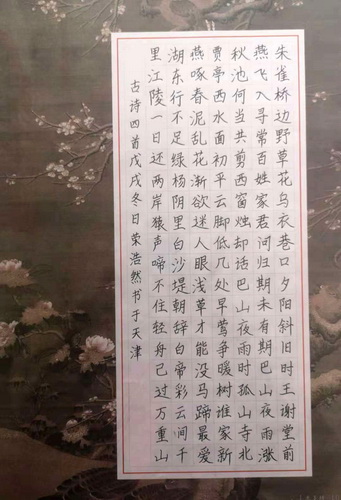 朱雀桥边野草花乌衣巷口夕阳斜旧时王谢堂前
燕飞入寻常百姓家君问归期未有期巴山夜雨涨
秋池何当共剪西窗烛却话巴山夜雨时孤山寺北
贾亭西水面初平云脚低几处早莺争暖树谁家新
燕啄春泥乱花渐欲迷人眼浅草才能没马蹄最爱
湖东行不足绿杨阴里白沙堤朝辞白帝彩云间千
里江陵一日还两岸猿声啼不住轻舟已过万重山
古诗四首戊戌冬日荣浩然书于天津